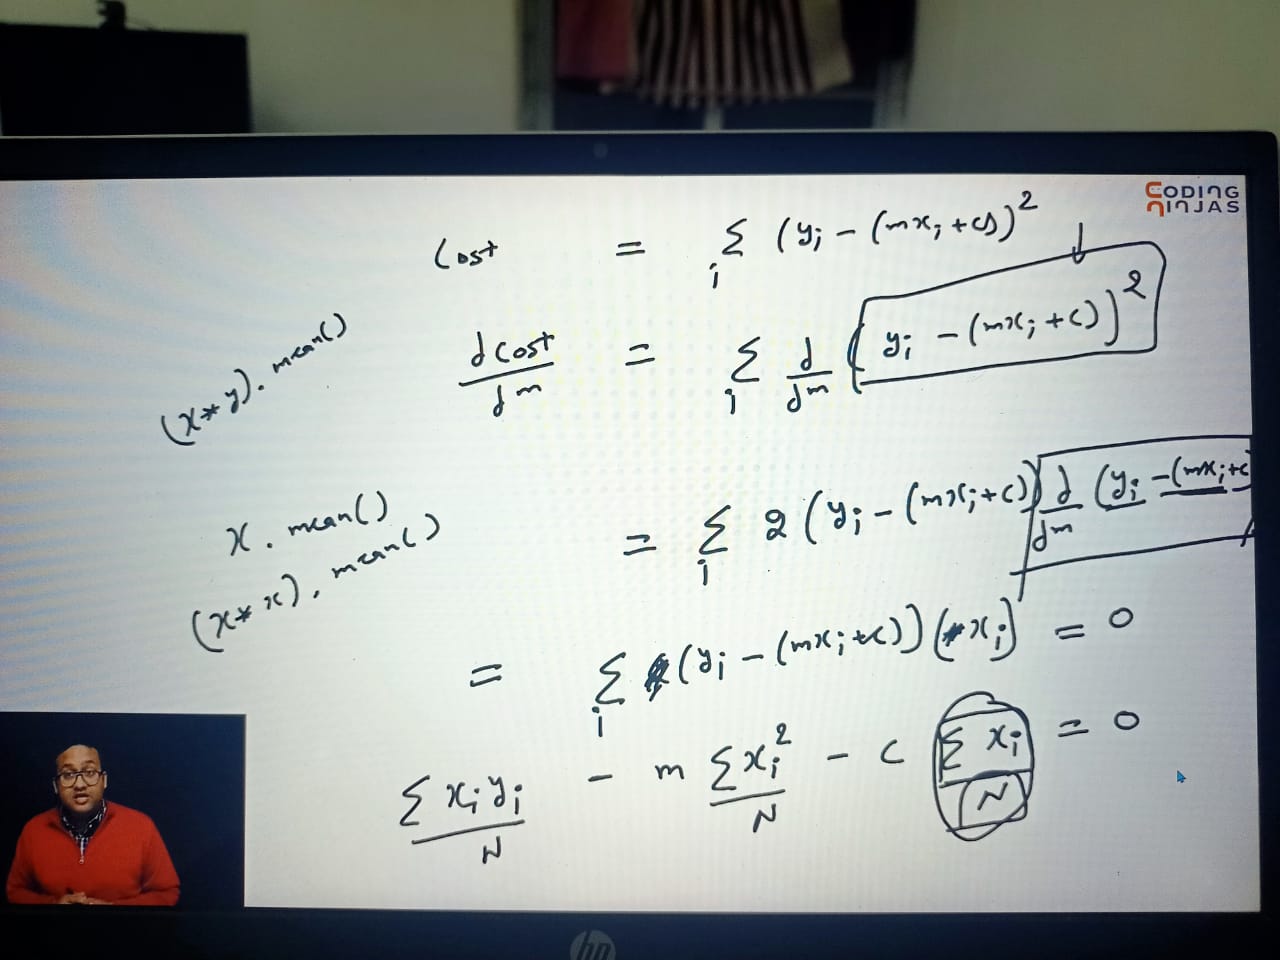 CODING
NINJAS
Cost = Σ_i (y_i - (mx_i + c))^2
(x*y).mean()
dcost/dm = Σ_i d/dm (y_i - (mx_i + c))^2
x.mean()
(x*x).mean()
= Σ_i 2(y_i - (mx_i + c)) d/dm (y_i - (mx_i + c
= Σ_i (y_i - (mx_i + c))(x_i) = 0
Σ x_i y_i / N - m Σ x_i^2 / N - c Σ x_i / N = 0
hp